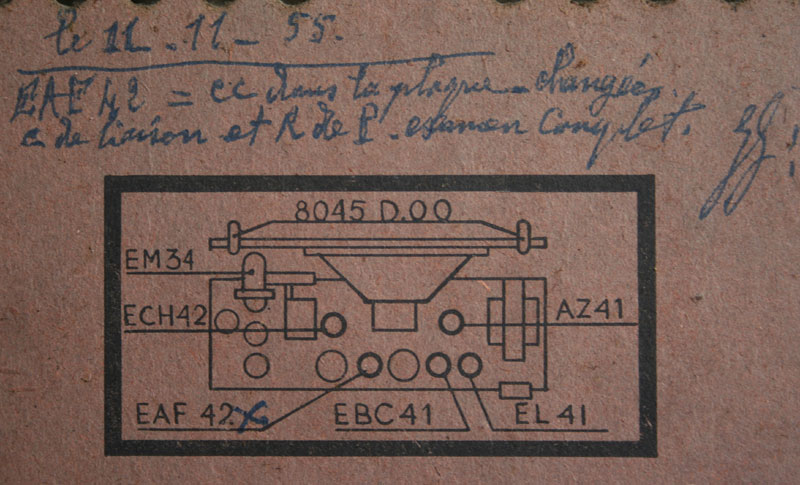 le 11-11-55.
EAF 42 = cc dans la plaque - changée.
c de liaison et R de P - examen Complet.
8045 D.00
EM34
ECH42
AZ41
EAF 42 x
EBC41
EL 41